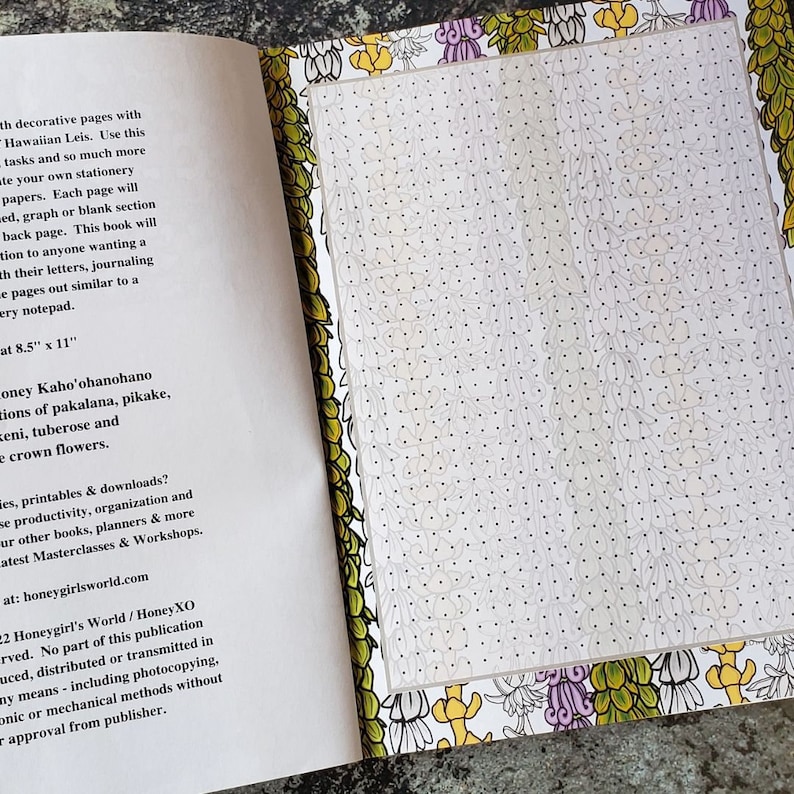 th decorative pages with
Hawaiian Leis. Use this
, tasks and so much more
te your own stationery
papers. Each page will
ed, graph or blank section
back page. This book will
tion to anyone wanting a
th their letters, journaling
e pages out similar to a
ery notepad.
at 8.5" x 11"
oney Kaho'ohanohano
tions of pakalana, pikake,
keni, tuberose and
e crown flowers.
ies, printables & downloads?
se productivity, organization and
ur other books, planners & more
atest Masterclasses & Workshops.
at: honeygirlsworld.com
22 Honeygirl's World / HoneyXO
rved. No part of this publication
uced, distributed or transmitted in
ny means - including photocopying,
onic or mechanical methods without
r approval from publisher.